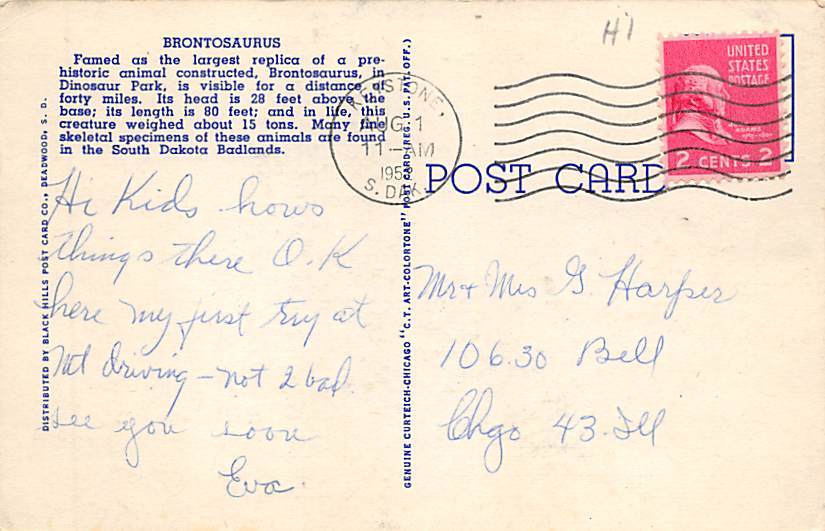 H1
BRONTOSAURUS
Famed as the largest replica of a pre-
historic animal constructed, Brontosaurus, in
Dinosaur Park, is visible for a distance of
forty miles. Its head is 28 feet above the
base; its length is 80 feet; and in life, this
creature weighed about 15 tons. Many fine
skeletal specimens of these animals are found
in the South Dakota Badlands.
DISTRIBUTED BY BLACK HILLS POST CARD CO., DEADWOOD, S. D.
Hi Kids hows
things there O.K
here my first try at
Mt driving – not 2 bad.
see you soon
Eva
GENUINE CURTEICH-CHICAGO "C.T. ART-COLORTONE" POST CARD (REG. U.S. PAT. OFF.)
KEYSTONE,
AUG 1
11-AM
195
S. DAK.
UNITED
STATES
POSTAGE
ADAMS
2 CENTS 2
POST CARD
Mr + Mrs G. Harper
106.30 Bell
Chgo 43. Ill